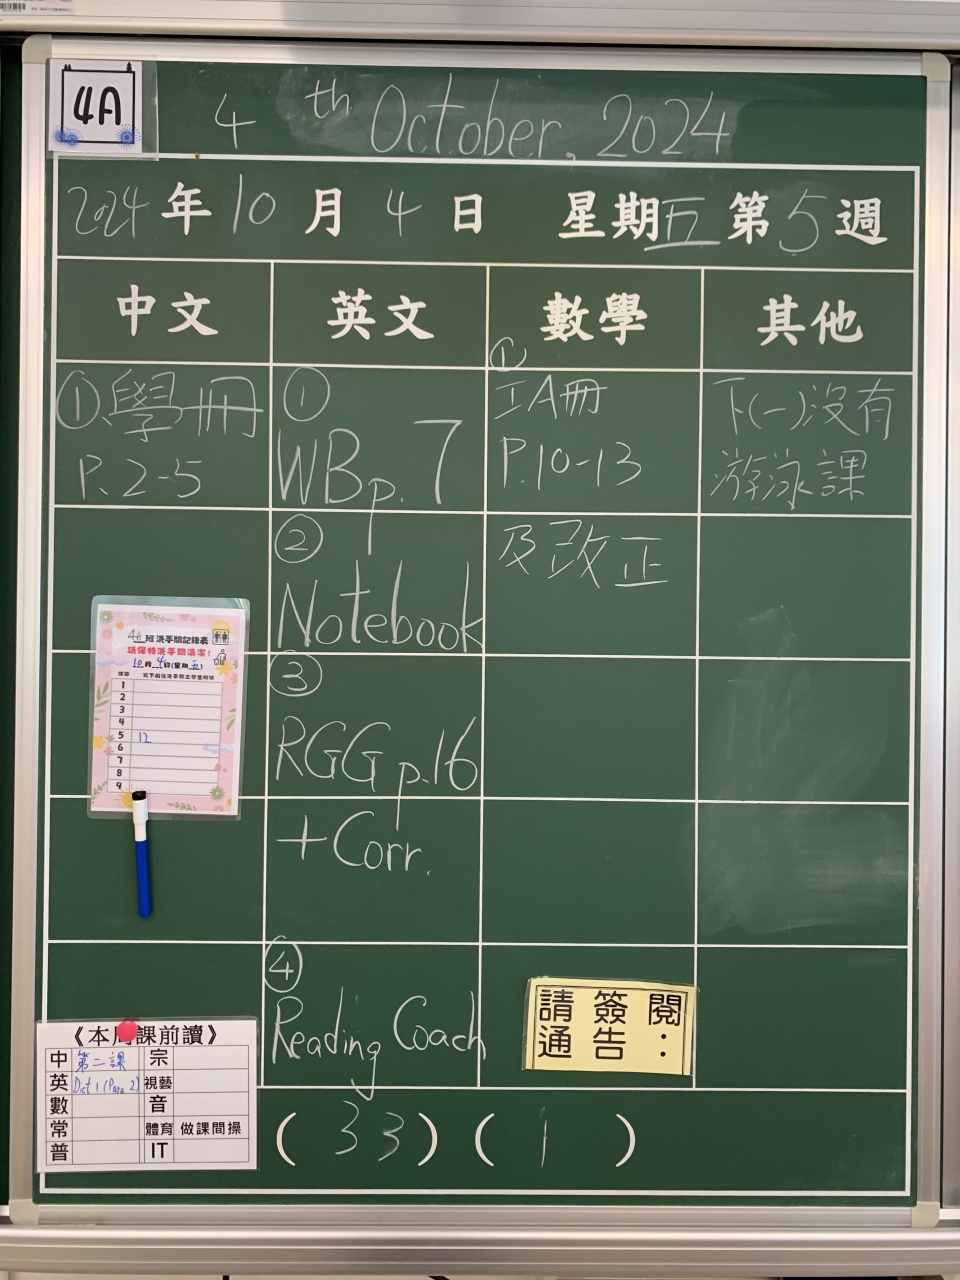 4A
4th October, 2024
2024年10月4日 星期五 第5週
中文 英文 數學 其他
①學冊
P.2-5
①
WB p.7
②
Notebook
③
RGG p.16
+Corr.
④
Reading Coach
①
工A冊
P.10-13
及改正
下(一)沒有
游泳課
4A班洗手間記錄表
請保持洗手間清潔!
10月4日(星期五)
1
2
3
4
5 12
6
7
8
9
請簽閱
通告:
《本周課前讀》
中 第二課 宗
英 Dict 1 (Para 2) 視藝
數 音
常 體育 做課間操
普 IT
(33)(1)